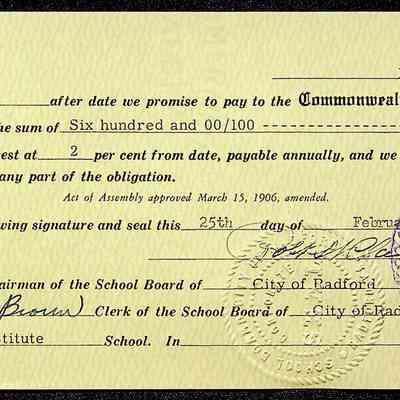 after date we promise to pay to the Commonweal
he sum of Six hundred and 00/100 ----------------
est at 2 per cent from date, payable annually, and we
any part of the obligation.
Act of Assembly approved March 15, 1906, amended.
wing signature and seal this 25th day of Februa
airman of the School Board of City of Radford
Brown) Clerk of the School Board of City of Rad
stitute School. In